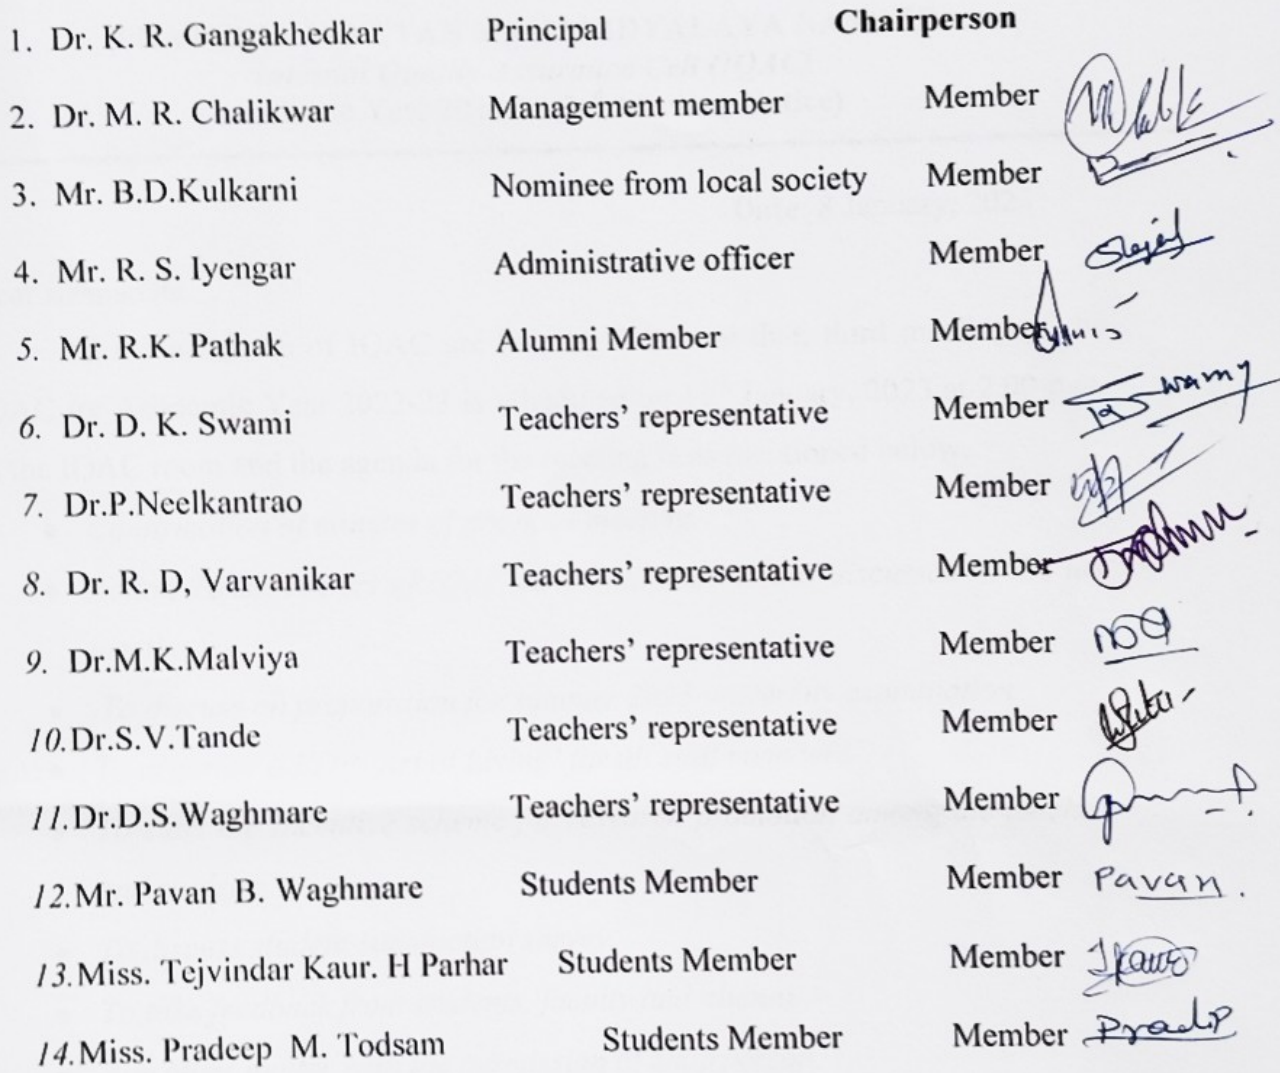 1. Dr. K. R. Gangakhedkar Principal Chairperson
2. Dr. M. R. Chalikwar Management member Member
3. Mr. B.D.Kulkarni Nominee from local society Member
4. Mr. R. S. Iyengar Administrative officer Member
5. Mr. R.K. Pathak Alumni Member Member
6. Dr. D. K. Swami Teachers' representative Member
7. Dr.P.Neelkantrao Teachers' representative Member
8. Dr. R. D, Varvanikar Teachers' representative Member
9. Dr.M.K.Malviya Teachers' representative Member
10.Dr.S.V.Tande Teachers' representative Member
11.Dr.D.S.Waghmare Teachers' representative Member
12.Mr. Pavan B. Waghmare Students Member Member Pavan.
13.Miss. Tejvindar Kaur. H Parhar Students Member Member
14.Miss. Pradeep M. Todsam Students Member Member Pradip